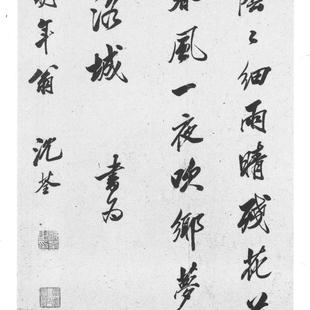 陰〻細雨晴殘花
春風一夜吹鄉夢
洛城 書為
年翁 沈荃